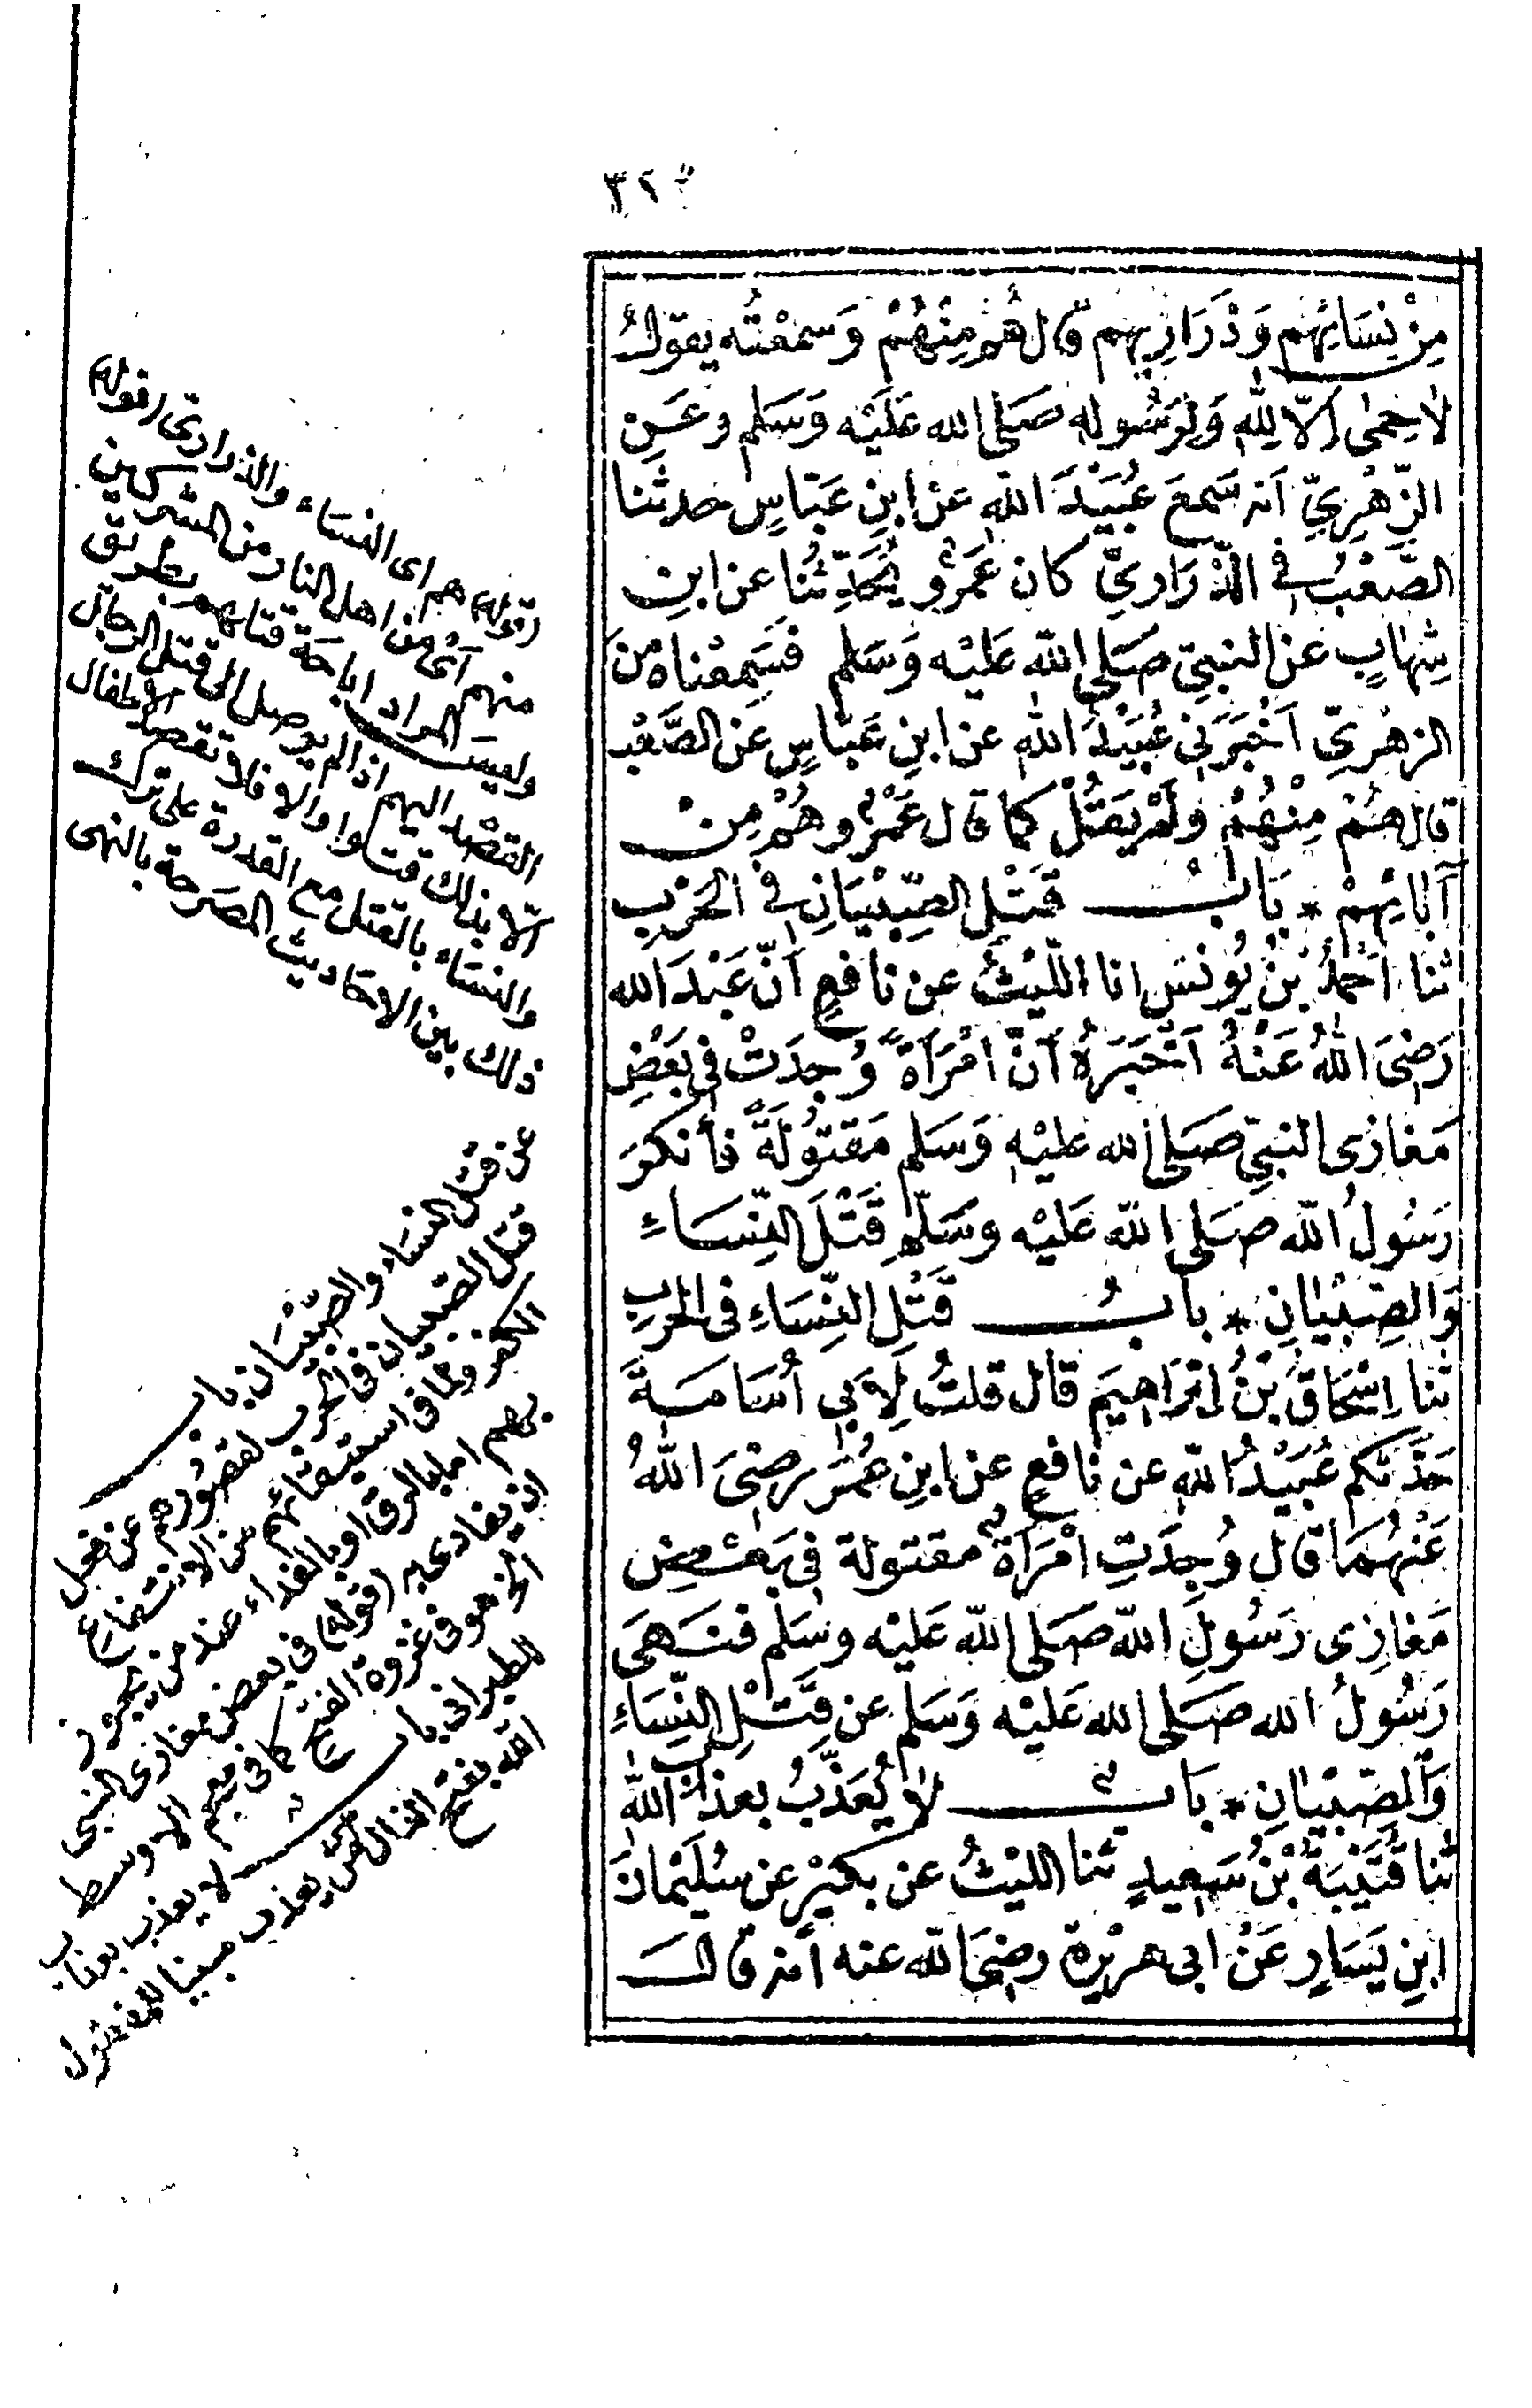 ٣٢٠
مِنْ نِسَائِهُم وَذَرَارِيهِم قال هُم مِنْهُمْ وَسمعْتُه يقوَلُ
لاحِمٰى اِلّا لِلّٰهِ وَلِرَسُولِهِ صَلى الله عَلَيْه وَسَلم وعَنِ
الزّهْرِيِّ اَنه سَمعَ عُبَيْدَ اللّٰهِ عَنْ ابنِ عَبّاسٍ حدثنا
الصَّعْبُ فى الذّرَاريّ كان عَمْرٌو يُحَدِّثُنا عن ابنِ
شِهَابٍ عن النبىّ صَلى اللّه عَليْه وَسَلم فَسَمِعْناهُ مِنَ
الزهْريّ اَخْبَرَنى عُبَيْدُ اللّٰه عن ابنِ عَبّاسٍ عَن الصَّعْبِ
قال هُمْ مِنْهُمْ ولَمْ يَقُلْ كما قال عَمْرٌو هُمْ مِنْ
آبائِهِمْ * بَابُ قَتْلِ الصِّبْيَانِ فى الحَرْبِ
ثنا اَحْمَدُ بْنُ يُونسَ انا اللّيْثُ عن نافعٍ اَنّ عَبْدَ الله
رَضىَ اللّٰهُ عَنْهُ اَخْبَرَهُ اَنّ امْرَاَةً وُجِدَتْ فى بَعْضِ
مَغازى النبىِّ صَلى الله عليْه وَسَلم مَقتُولَةً فأنكرَ
رَسُولُ اللّه صَلى اللّه عَليْه وسَلّم قَتْلَ النِّسَاءِ
وَالصِّبْيٰانِ * بابُ قَتْلِ النِّسَاءِ فى الحربِ
ثنا اِسْحَاقُ بْنُ اِبْرَاهِيمَ قال قلتُ لِاَبى اُسَامَةَ
حَدَّثَكم عُبَيْدُ اللّهِ عن نافعٍ عن ابنِ عُمَرَ رضىَ اللّٰهُ
عَنْهُمَا قال وُجِدَتِ امْرَاَةٌ مقتولة فى بَعْضِ
مَغازِى رَسُولِ اللّه صَلى اللّه عَليْه وسَلم فنَهَى
رَسُولُ الله صَلى الله عَليْه وَسَلم عن قَتْلِ النِّسَاءِ
وَالصِّبْيانِ * بَابٌ لا يُعَذَّبُ بعذاب اللّٰه
ثنا قُتَيْبَةُ بْنُ سَعِيدٍ ثنا الليْثُ عن بكيْرٍ عن سُلَيْمانَ
ابنِ يَسَارٍ عَنْ ابى هريْرة رضىَ اللّه عنه اَنه قال
والذرارىّ (قوله)
(قوله) هم اى النسَاء
منهم اىْ من اهل النار من المشركين
وليس المراد اباحَة قتلهم بطريق
القصْد اليهم اذا لم يوصل الى قتل الرجال
الّا بذلك قتلوا والا فلا تقصد الاطفال
والنسَاء بالقتل مع القدرة على ترك
ذلك بين الاحاديث المصَرحة بالنهى
عن قتل النسَاء والصِّبْيَان باب
قتل الصّبيان فى الحرب لقصُورهم عن فعل
الكفر ولما فى استبقائهم من الانتفاع
بهم اما بالرق او بالفداء عند من يجوز
ان يفادى به (قوله) فى بعض مغازى النبى
الخ هو فى غزوة الفتح كما فى معجم الاوسط
للطبرانى باب لا يعذب بعذاب
الله بفتح الذال من يعذب مبنيا للمفعول